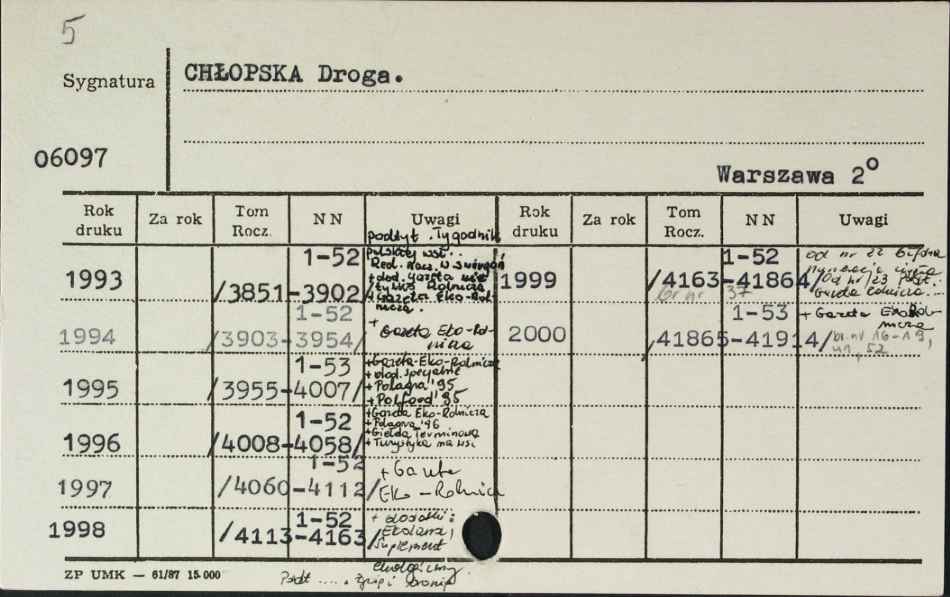 5
Sygnatura
CHŁOPSKA Droga.
06097
Warszawa 2°
Rok druku Za rok Tom Rocz. NN Uwagi Rok druku Za rok Tom Rocz. NN Uwagi
podtyt. Tygodnik
1993 /3851-3902/ 1-52
+ dod. Gazeta
tylko Rolnicza
+ Gazeta Eko-Rolnicza.
1999 /4163-41864/ 1-52
br nr 37
od nr 22
1994 /3903-3954/ 1-52
+ Gazeta Eko-Rolnicza
2000 /41865-41914/ 1-53
+ Gazeta Eko-Rolnicza
br. nr 16-19,
52
1995 /3955-4007/ 1-53
+Gazeta-Eko-Rolnicza
+dod. specjalne
+Polagra '95
+Polfood '95
1996 /4008-4058/ 1-52
+Gazeta Eko-Rolnicza
+Polagra '96
+Giełda Terminowa
+Turystyka na wsi
1997 /4060-4112/ 1-52
+ Gazeta
Eko-Rolnicza
1998 /4113-4163/ 1-52
+ dodatki:
suplement
ekologiczny
ZP UMK — 61/87 15.000